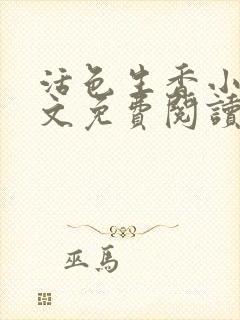 活色生香小
文免費閱讀
巫馬